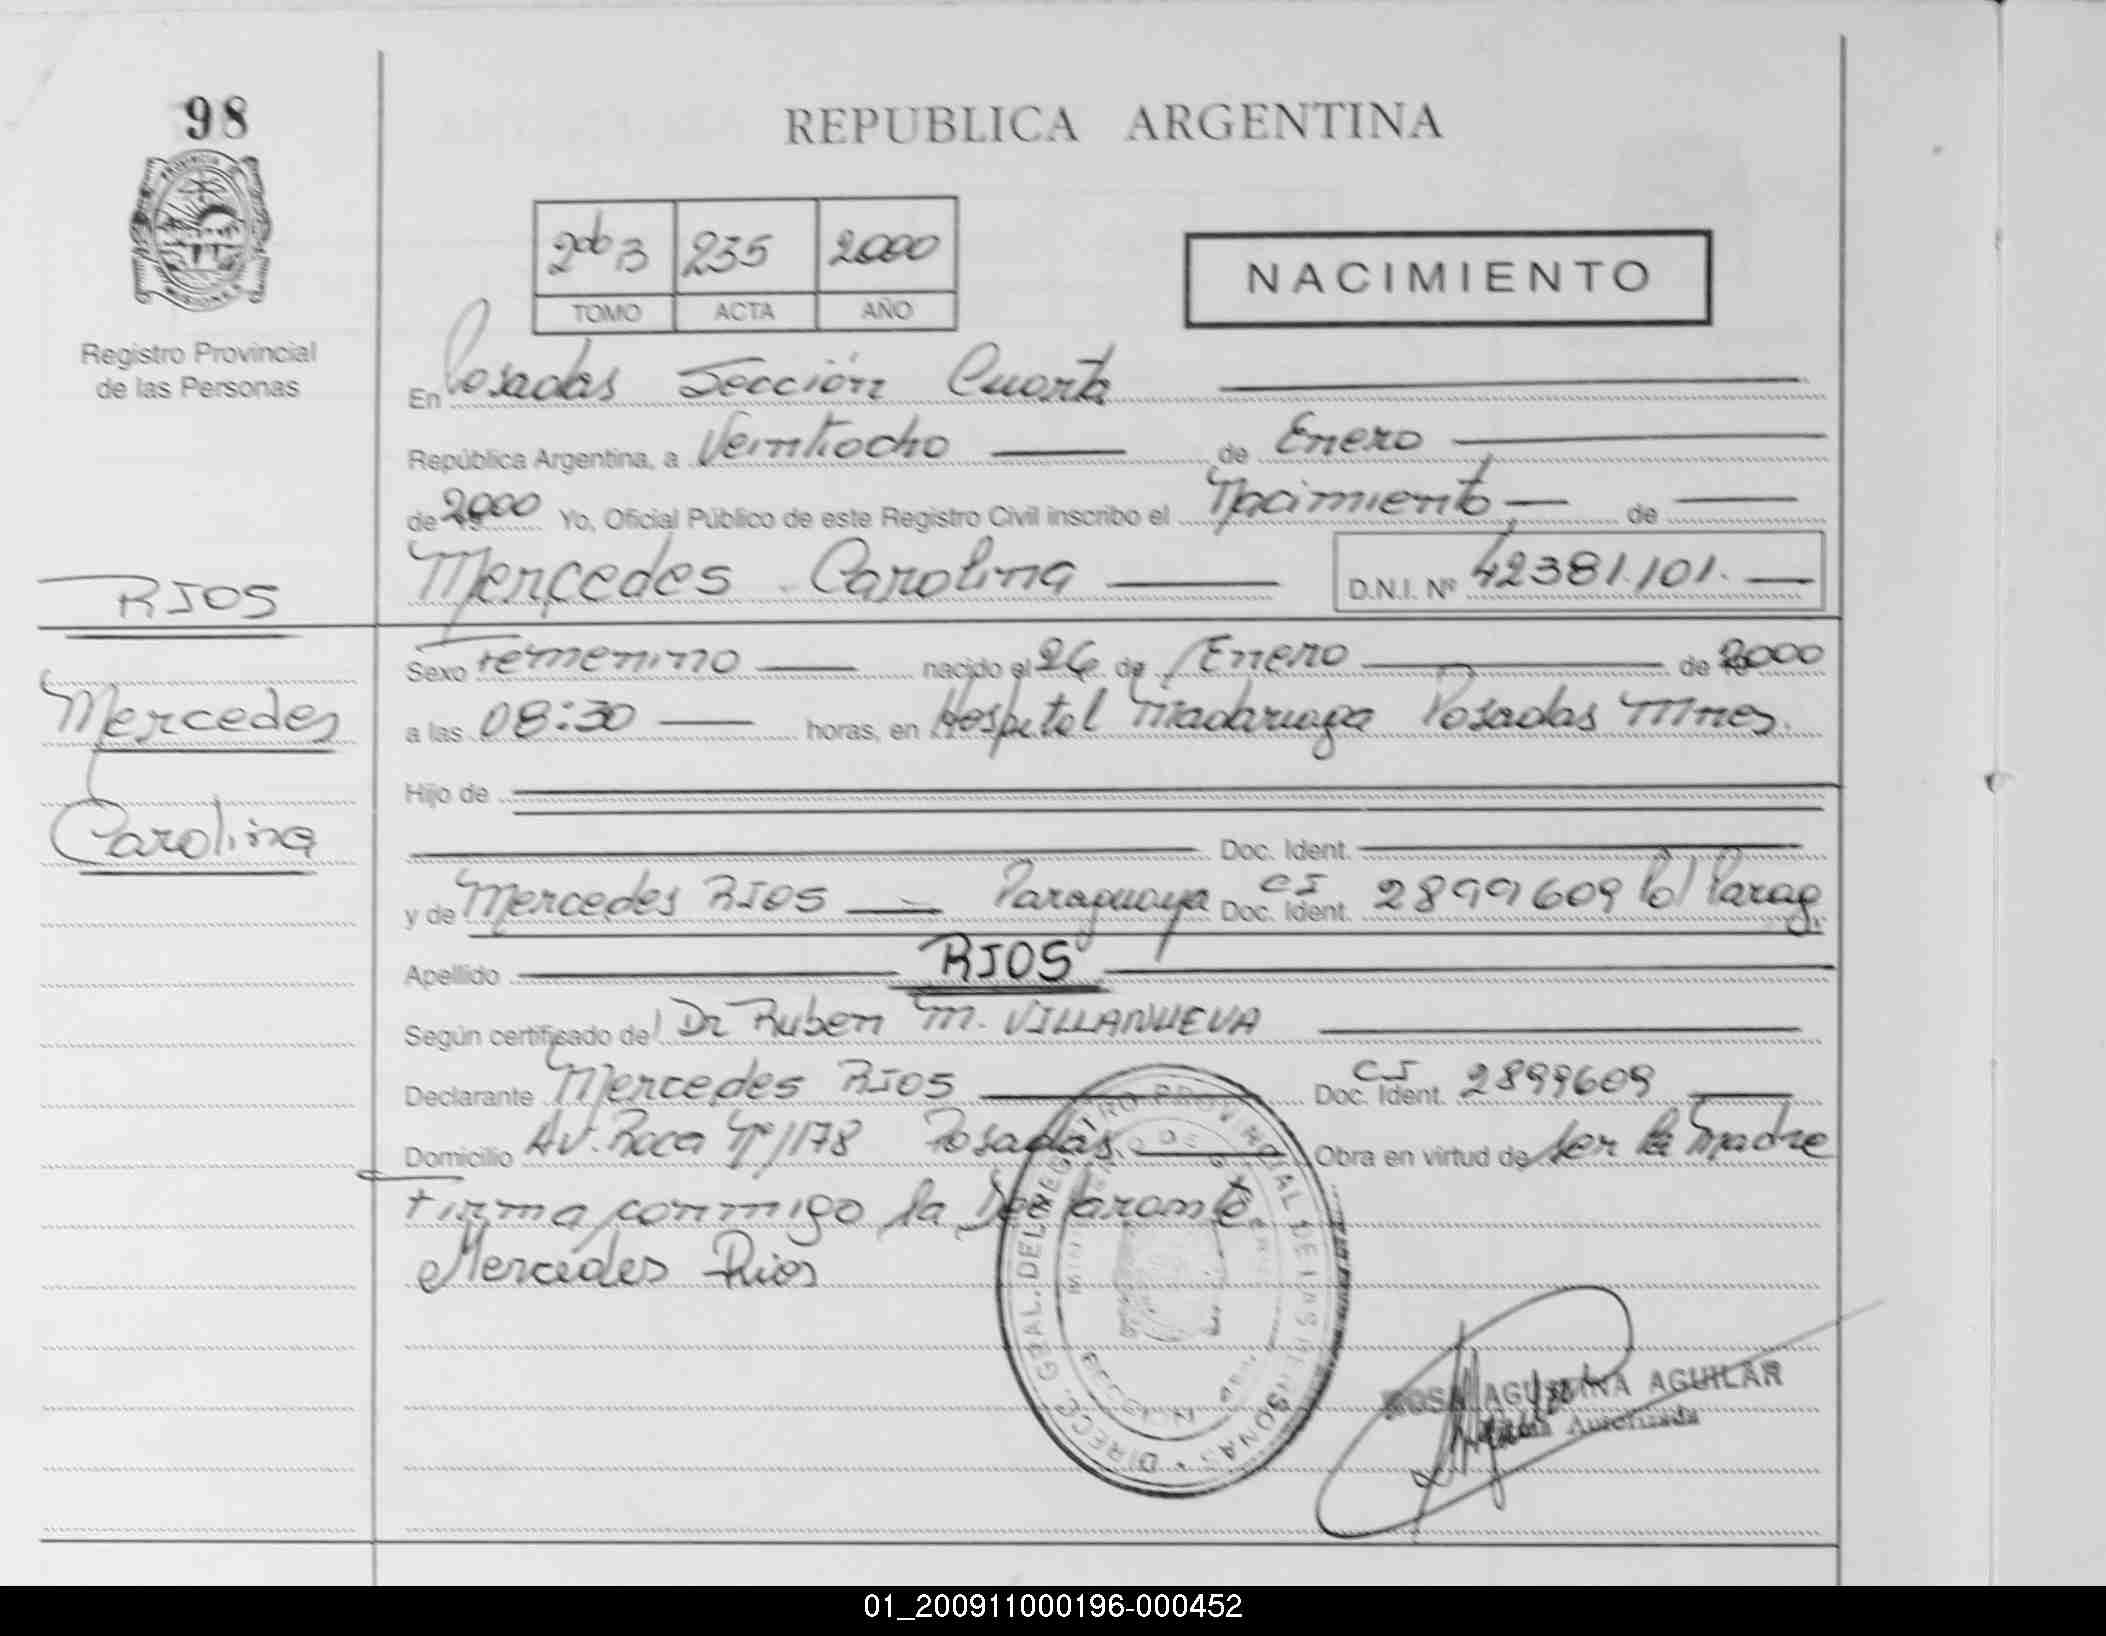 98
REPUBLICA ARGENTINA
2do B 235 2000
TOMO ACTA AÑO
NACIMIENTO
Registro Provincial
de las Personas
En Posadas Sección Cuarta
República Argentina, a Veintiocho de Enero
de 2000 Yo, Oficial Público de este Registro Civil inscribo el Nacimiento de
RIOS
Mercedes Carolina D.N.I. Nº 42381.101.
Mercedes
Carolina
Sexo Femenino nacido el 26 de Enero de 2000
a las 08:30 horas, en Hospital Madariaga Posadas Mnes.
Hijo de
Doc. Ident.
y de Mercedes RIOS Paraguaya Doc. Ident. CI 2899609 Pol Parag.
Apellido RIOS
Según certificado del Dr Ruben M. VILLANUEVA
Declarante Mercedes RIOS Doc. Ident. CI 2899609
Domicilio Av. Roca Nº 1178 Posadas Obra en virtud de ser la Madre
Firma conmigo la Declarante
Mercedes Rios
DIRECC. GRAL. DEL REGISTRO PROVINCIAL DE LAS PERSONAS
MISIONES
ROSA AGUSTINA AGUILAR
Autorizada
01_200911000196-000452